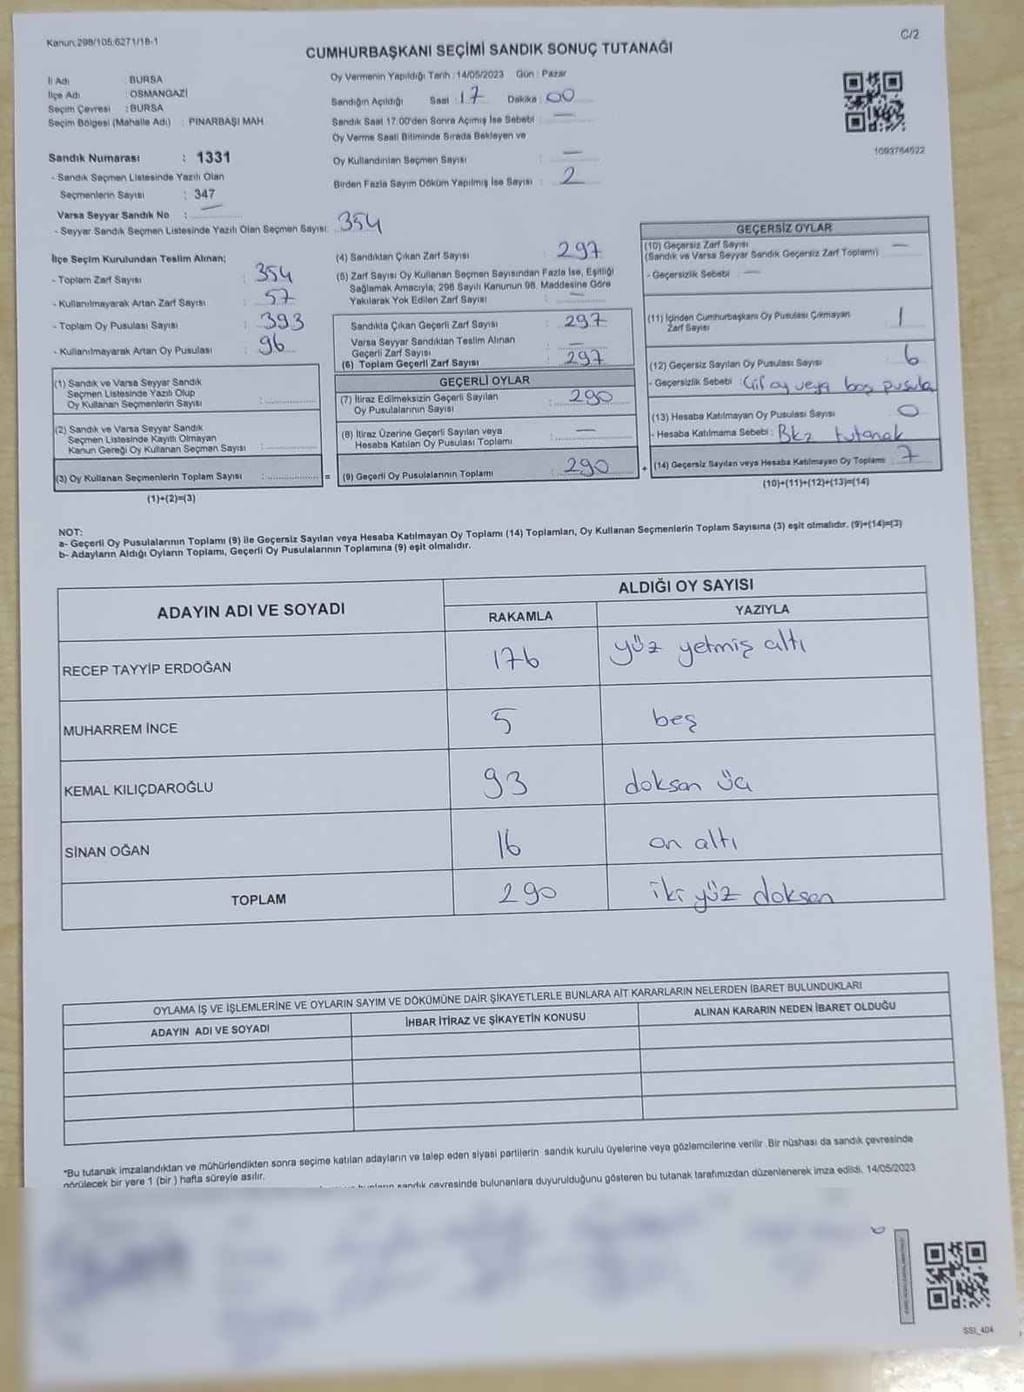 Kanun:298/105,6271/18-1
C/2
CUMHURBAŞKANI SEÇİMİ SANDIK SONUÇ TUTANAĞI
İl Adı : BURSA
İlçe Adı : OSMANGAZİ
Seçim Çevresi : BURSA
Seçim Bölgesi (Mahalle Adı) : PINARBAŞI MAH.
Oy Vermenin Yapıldığı Tarih : 14/05/2023 Gün : Pazar
Sandığın Açıldığı Saat : 17 Dakika : 00
Sandık Saat 17.00'den Sonra Açılmış İse Sebebi : —
Oy Verme Saati Bitiminde Sırada Bekleyen ve
Oy Kullandırılan Seçmen Sayısı : —
Birden Fazla Sayım Döküm Yapılmış İse Sayısı : 2
1093764522
Sandık Numarası : 1331
- Sandık Seçmen Listesinde Yazılı Olan
Seçmenlerin Sayısı : 347
Varsa Seyyar Sandık No : —
- Seyyar Sandık Seçmen Listesinde Yazılı Olan Seçmen Sayısı: 354
İlçe Seçim Kurulundan Teslim Alınan;
- Toplam Zarf Sayısı : 354
- Kullanılmayarak Artan Zarf Sayısı : 57
- Toplam Oy Pusulası Sayısı : 393
- Kullanılmayarak Artan Oy Pusulası : 96
(1) Sandık ve Varsa Seyyar Sandık
Seçmen Listesinde Yazılı Olup
Oy Kullanan Seçmenlerin Sayısı :
(2) Sandık ve Varsa Seyyar Sandık
Seçmen Listesinde Kayıtlı Olmayan
Kanun Gereği Oy Kullanan Seçmen Sayısı :
(3) Oy Kullanan Seçmenlerin Toplam Sayısı : =
(1)+(2)=(3)
(4) Sandıktan Çıkan Zarf Sayısı : 297
(5) Zarf Sayısı Oy Kullanan Seçmen Sayısından Fazla İse, Eşitliği
Sağlamak Amacıyla; 298 Sayılı Kanunun 98. Maddesine Göre
Yakılarak Yok Edilen Zarf Sayısı : —
Sandıkta Çıkan Geçerli Zarf Sayısı : 297
Varsa Seyyar Sandıktan Teslim Alınan
Geçerli Zarf Sayısı : —
(6) Toplam Geçerli Zarf Sayısı : 297
GEÇERLİ OYLAR
(7) İtiraz Edilmeksizin Geçerli Sayılan
Oy Pusulalarının Sayısı : 290
(8) İtiraz Üzerine Geçerli Sayılan veya
Hesaba Katılan Oy Pusulası Toplamı : —
(9) Geçerli Oy Pusulalarının Toplamı : 290 +
GEÇERSİZ OYLAR
(10) Geçersiz Zarf Sayısı : —
(Sandık ve Varsa Seyyar Sandık Geçersiz Zarf Toplamı)
- Geçersizlik Sebebi : —
(11) İçinden Cumhurbaşkanı Oy Pusulası Çıkmayan
Zarf Sayısı : 1
(12) Geçersiz Sayılan Oy Pusulası Sayısı : 6
- Geçersizlik Sebebi : Çift oy veya boş pusula
(13) Hesaba Katılmayan Oy Pusulası Sayısı : 0
- Hesaba Katılmama Sebebi : Bkz tutanak
(14) Geçersiz Sayılan veya Hesaba Katılmayan Oy Toplamı : 7
(10)+(11)+(12)+(13)=(14)
NOT:
a- Geçerli Oy Pusulalarının Toplamı (9) ile Geçersiz Sayılan veya Hesaba Katılmayan Oy Toplamı (14) Toplamları, Oy Kullanan Seçmenlerin Toplam Sayısına (3) eşit olmalıdır. (9)+(14)=(3)
b- Adayların Aldığı Oyların Toplamı, Geçerli Oy Pusulalarının Toplamına (9) eşit olmalıdır.
ADAYIN ADI VE SOYADI
ALDIĞI OY SAYISI
RAKAMLA YAZIYLA
RECEP TAYYİP ERDOĞAN 176 yüz yetmiş altı
MUHARREM İNCE 5 beş
KEMAL KILIÇDAROĞLU 93 doksan üç
SİNAN OĞAN 16 on altı
TOPLAM 290 iki yüz doksan
OYLAMA İŞ VE İŞLEMLERİNE VE OYLARIN SAYIM VE DÖKÜMÜNE DAİR ŞİKAYETLERLE BUNLARA AİT KARARLARIN NELERDEN İBARET BULUNDUKLARI
ADAYIN ADI VE SOYADI İHBAR İTİRAZ VE ŞİKAYETİN KONUSU ALINAN KARARIN NEDEN İBARET OLDUĞU
*Bu tutanak imzalandıktan ve mühürlendikten sonra seçime katılan adayların ve talep eden siyasi partilerin sandık kurulu üyelerine veya gözlemcilerine verilir. Bir nüshası da sandık çevresinde
görülecek bir yere 1 (bir) hafta süreyle asılır.
sandık çevresinde bulunanlara duyurulduğunu gösteren bu tutanak tarafımızdan düzenlenerek imza edildi. 14/05/2023
SSI_404